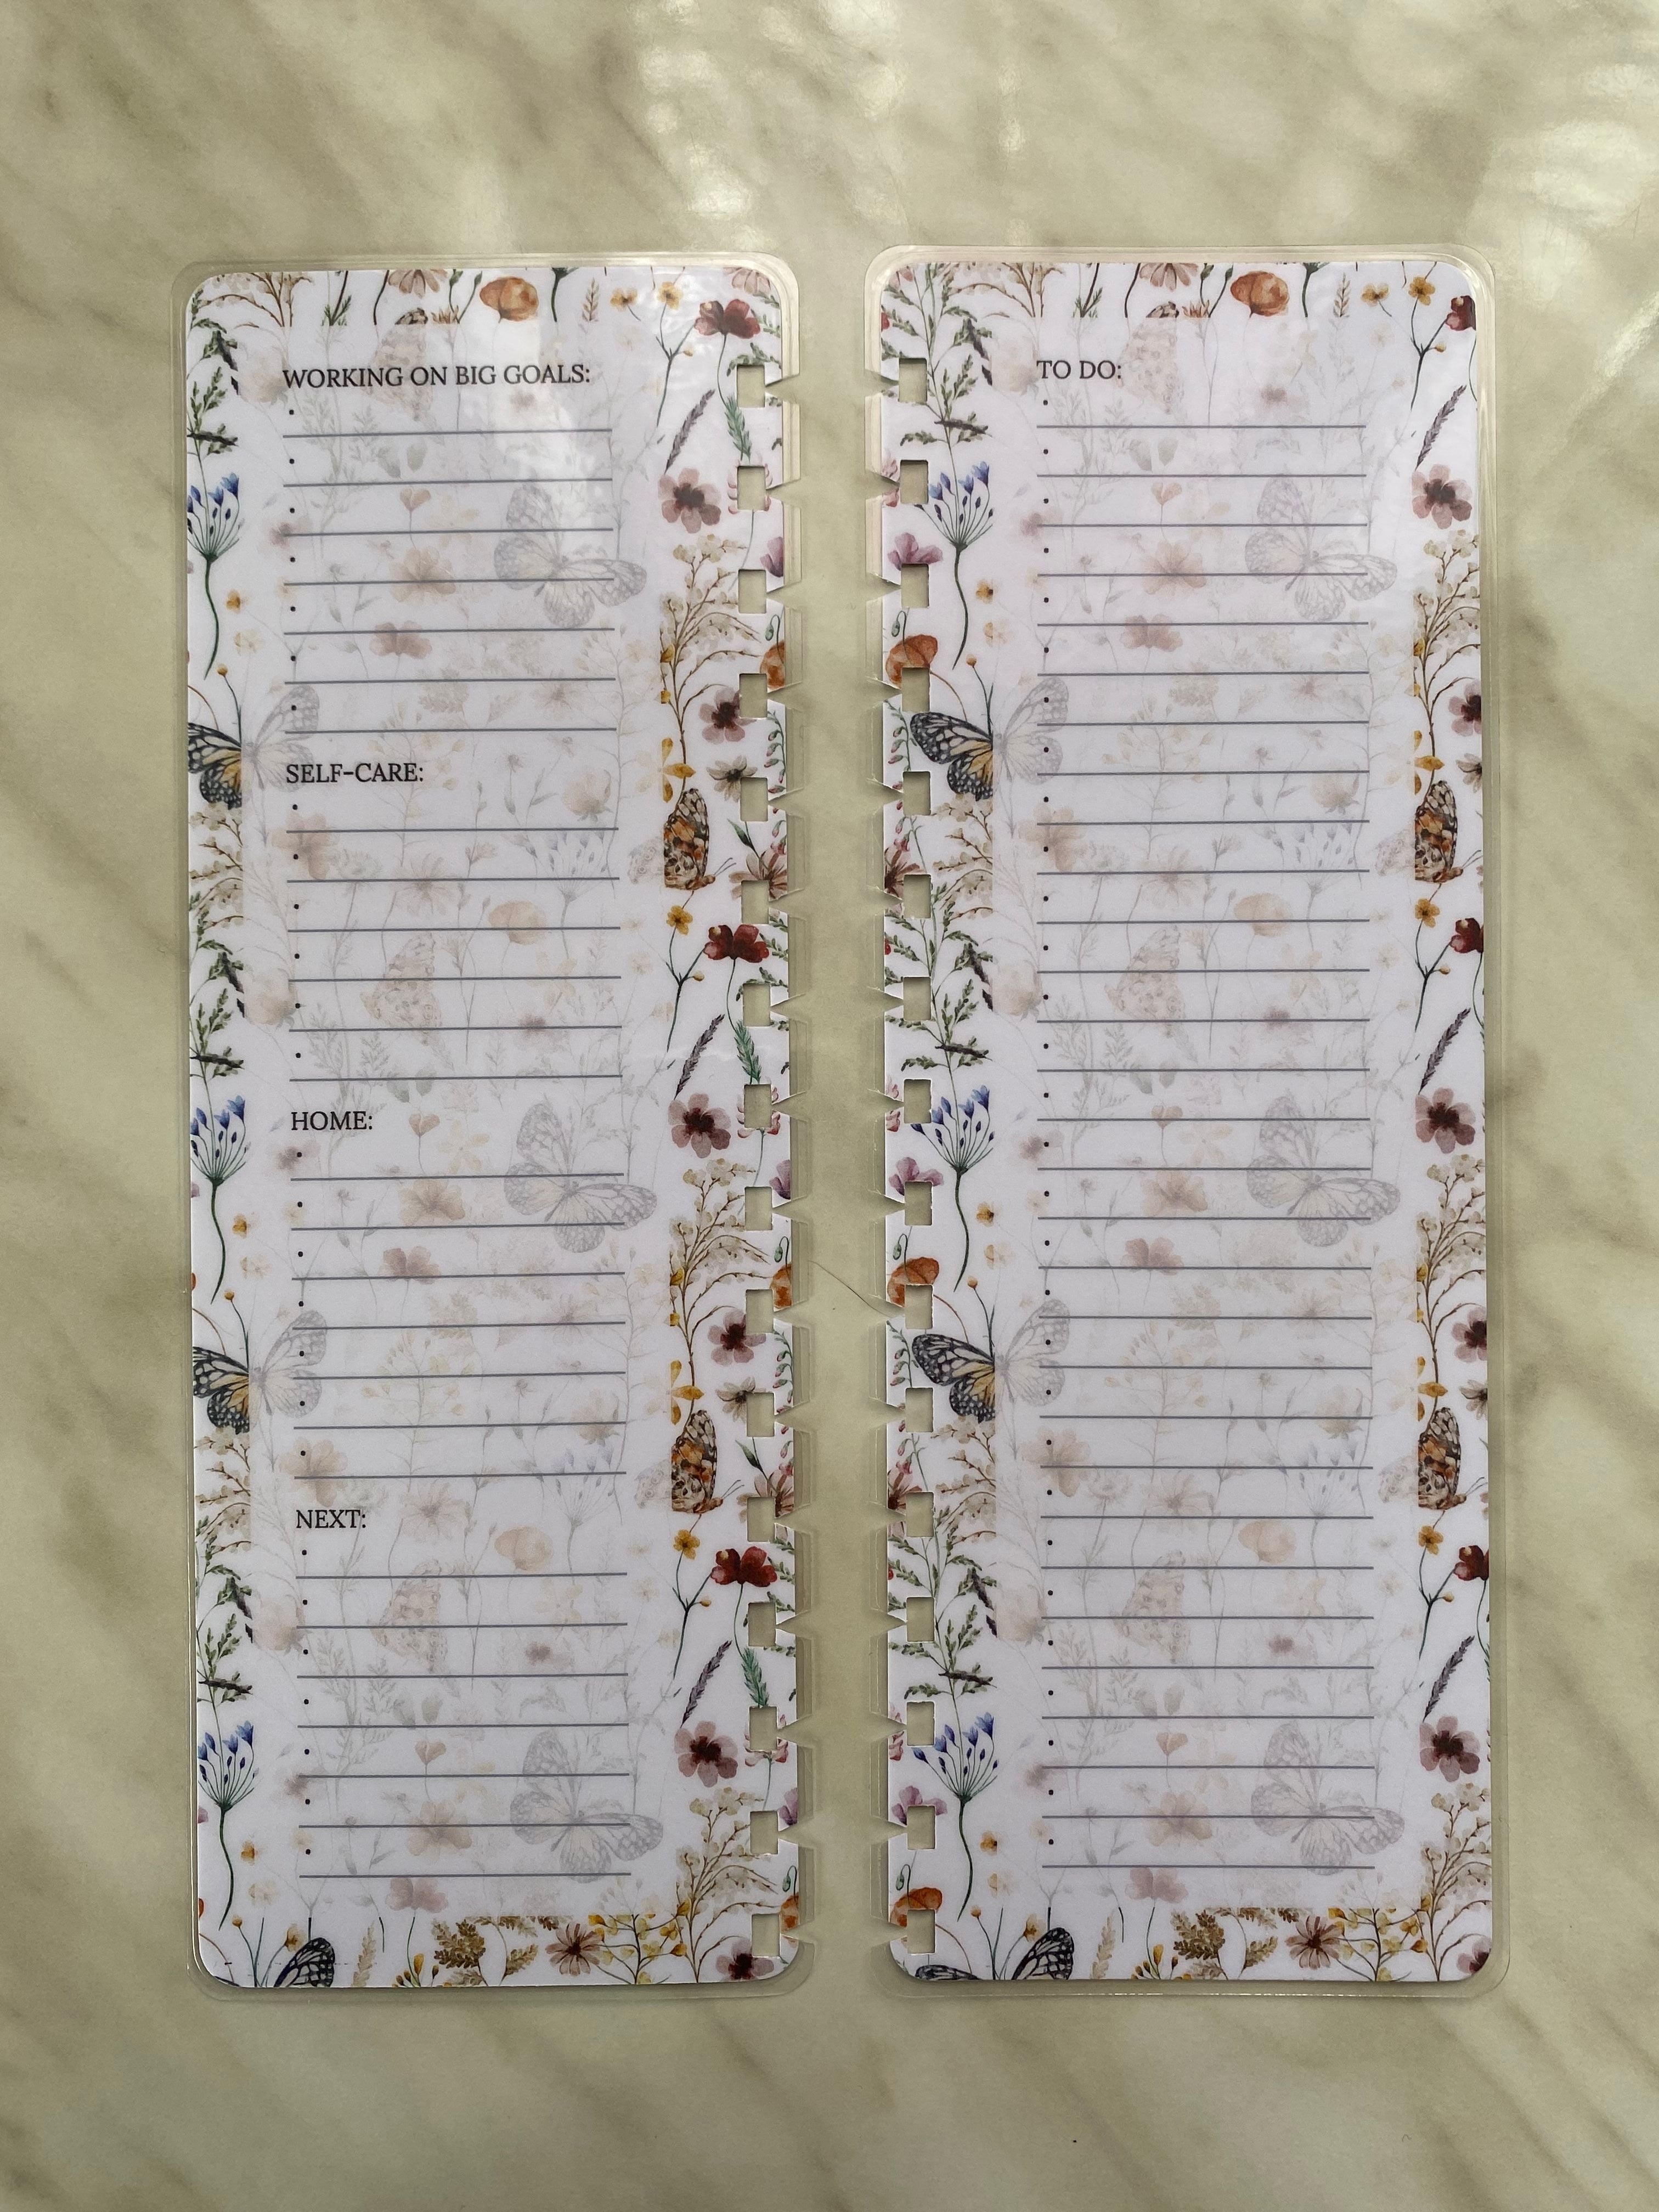 WORKING ON BIG GOALS:
SELF-CARE:
HOME:
NEXT:
TO DO: